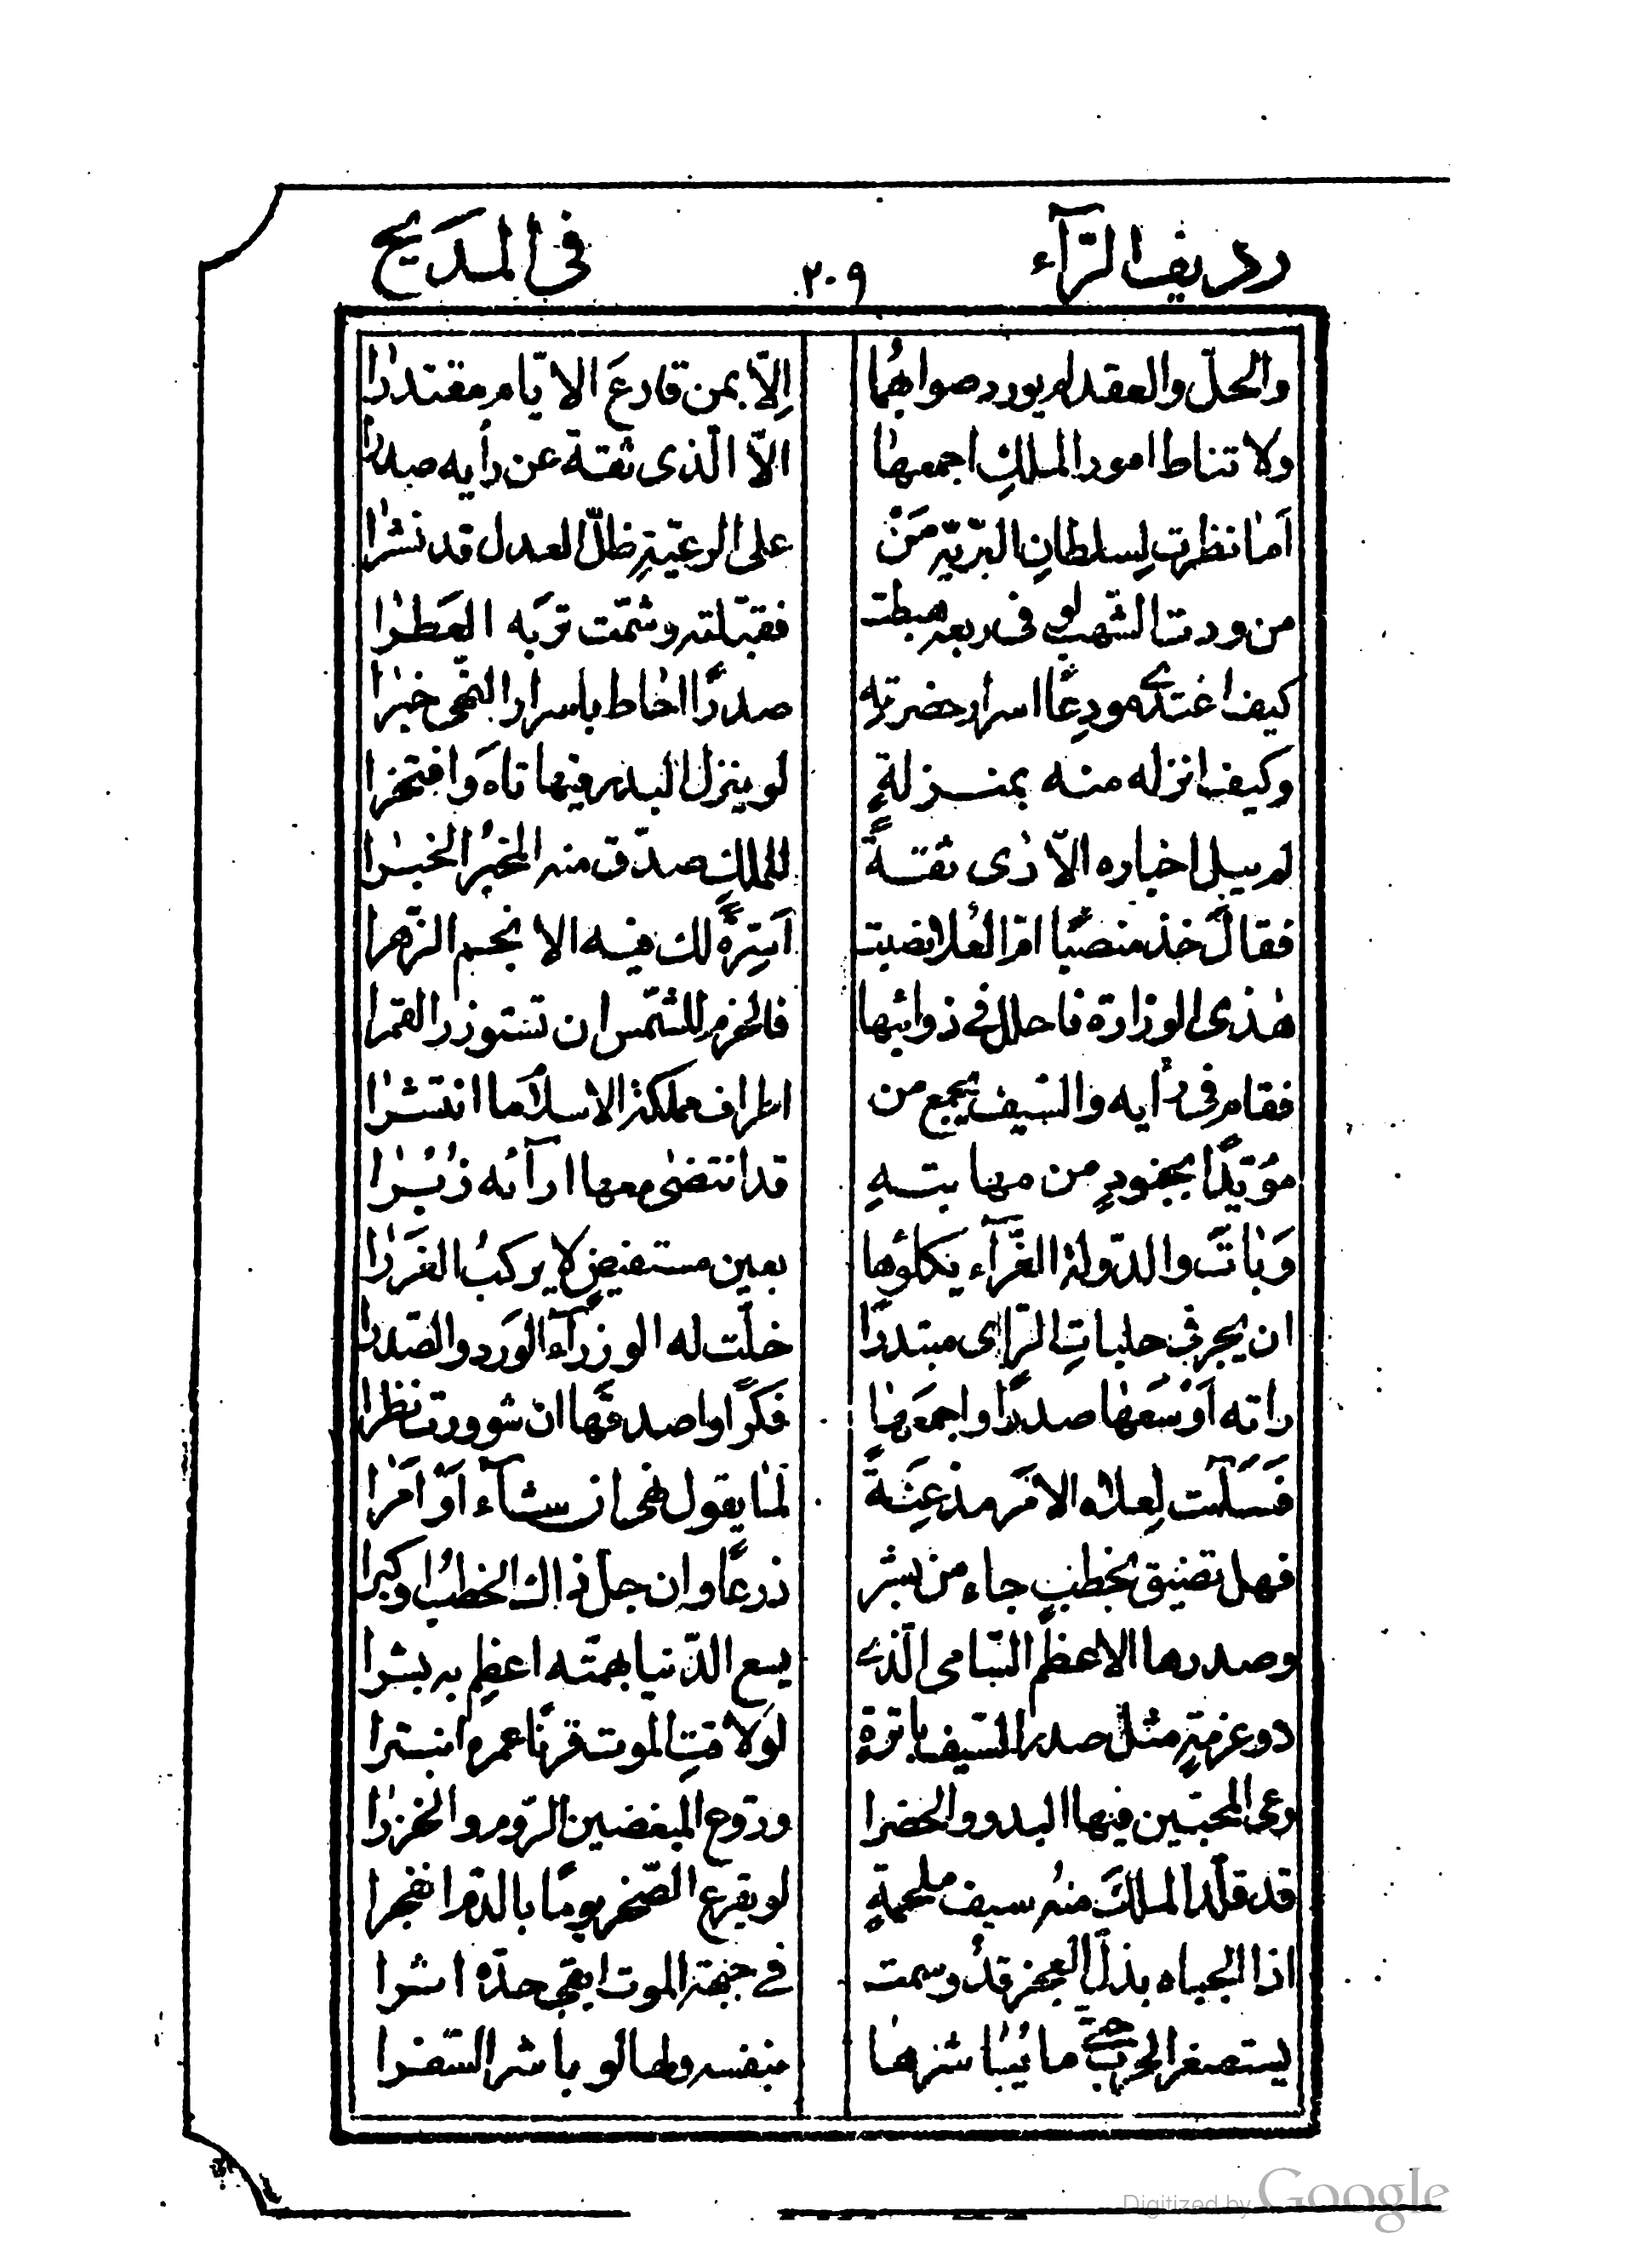 رديف الرّآء ٢٠٩ في المديح
والحلّ والعقد لم يورد صوابهُما إلّا بمن قارعَ الايّام مقتدرا
ولا تناط امور الملكِ اجمعها الّا الّذى ثقة عن رأيه صدرا
اَما نظرت لِسلطانِ البرّيّةِ مَنْ على الرعيّةِ ظلّ العدل قد نشرا
من ودت الشّهب لو فى ربعه هبطت فقبّلته وشمّت تربَه العَطرا
كيف اغتدى مودِعًا اسرار حضرته صدرًا احاط باسرار النّهى خبرا
وكيف انزله منه بمنزلةٍ لو ينزل البدر فيها تاهَ وافتخرا
لم يبل اخباره الّا رأى ثقةً للملكِ صدّق منه المخبرُ الخبرا
فقالَ خذ منصبًا امّ العُلا نصبت اَسِرّةً لك فيه الانجم الزّهرا
هذى الوزارة فاحلل في ذوائبها فالحزم للشّمس ان تستوزر القمرا
فقام فى رأيه والسّيف يجمع من اطراف مملكة الاسلام ما انتشرا
مؤيّدًا بجنودٍ من مهابتهِ قد انتضى معها ارآئه زُبُرا
وَباتَ والدّولة الغّرآء يكلؤها بعين مستفيضٍ لا يركبُ الغَررا
ان يجر فى حلباتِ الرّاى مبتدرًا خلّت له الوزرآء الوَرد والصّدرا
راته اَوْسَعها صدرًا واجمَعها فكرًا واصدقَها ان شوورت نظرا
فَسَلّمت لِعلاه الامَر مذعِنَةً لما يقول نهى ان شآء اَوْ اَمَرا
فهل تضيق بخطبٍ جاء من بشر ذرعًا وان جلّ ذاك الخطبُ او كبرا
وصدرها الاعظم السّامى الّذى يسع الدّنيا بهمّته اعظِم به بشرا
ذو عزمةٍ مثلُ صدر السّيف باترة لوَ لاقتِ الموت قرنًا عمره انبترا
رعى المحبّين فيها البدو والحضرا وروّع المبغضين الرّوم والخزرا
قد قلّد الملكَ منهُ سيف ملحمةٍ لو يقرع الصّخر يومًا بالدّم انفجرا
اذا الجباه بذلّ العجز قدُ وسمت في جبهة الموت ابقى حدّه اثرا
يستصغر الحربَ حتّى ما يُباشرها بنفسه ولها لو باشر السّفرا